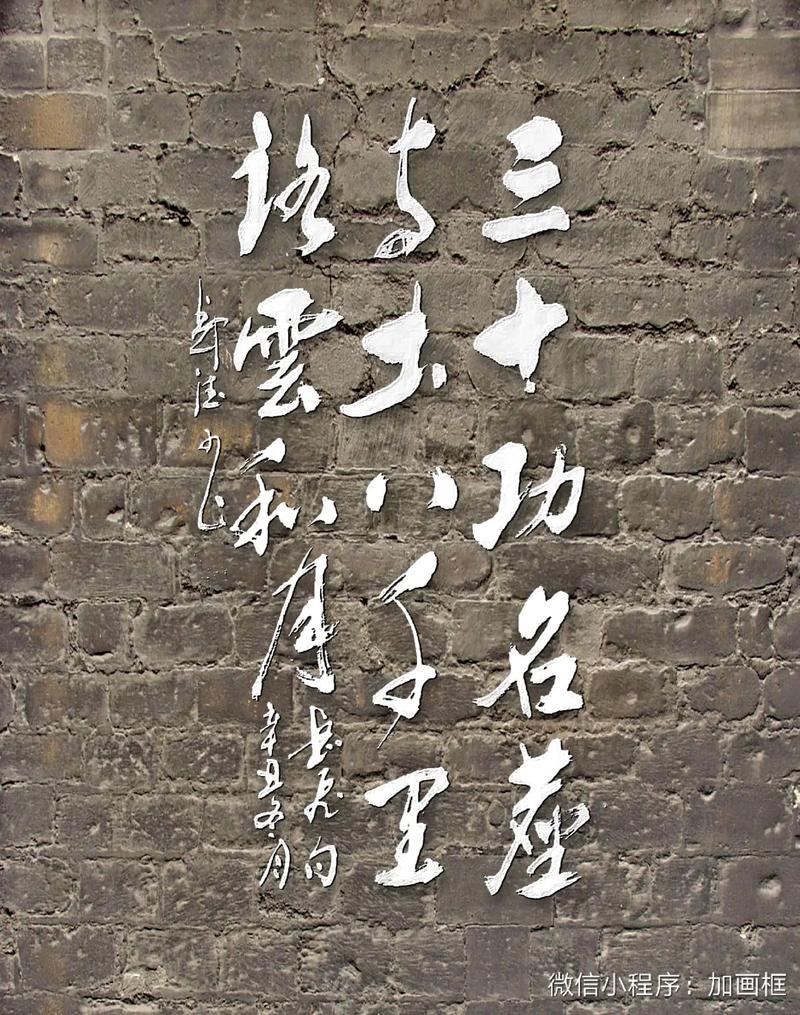 三十功名塵
与土八千里
路雲和月
岳飛句
辛丑冬月
微信小程序：加画框